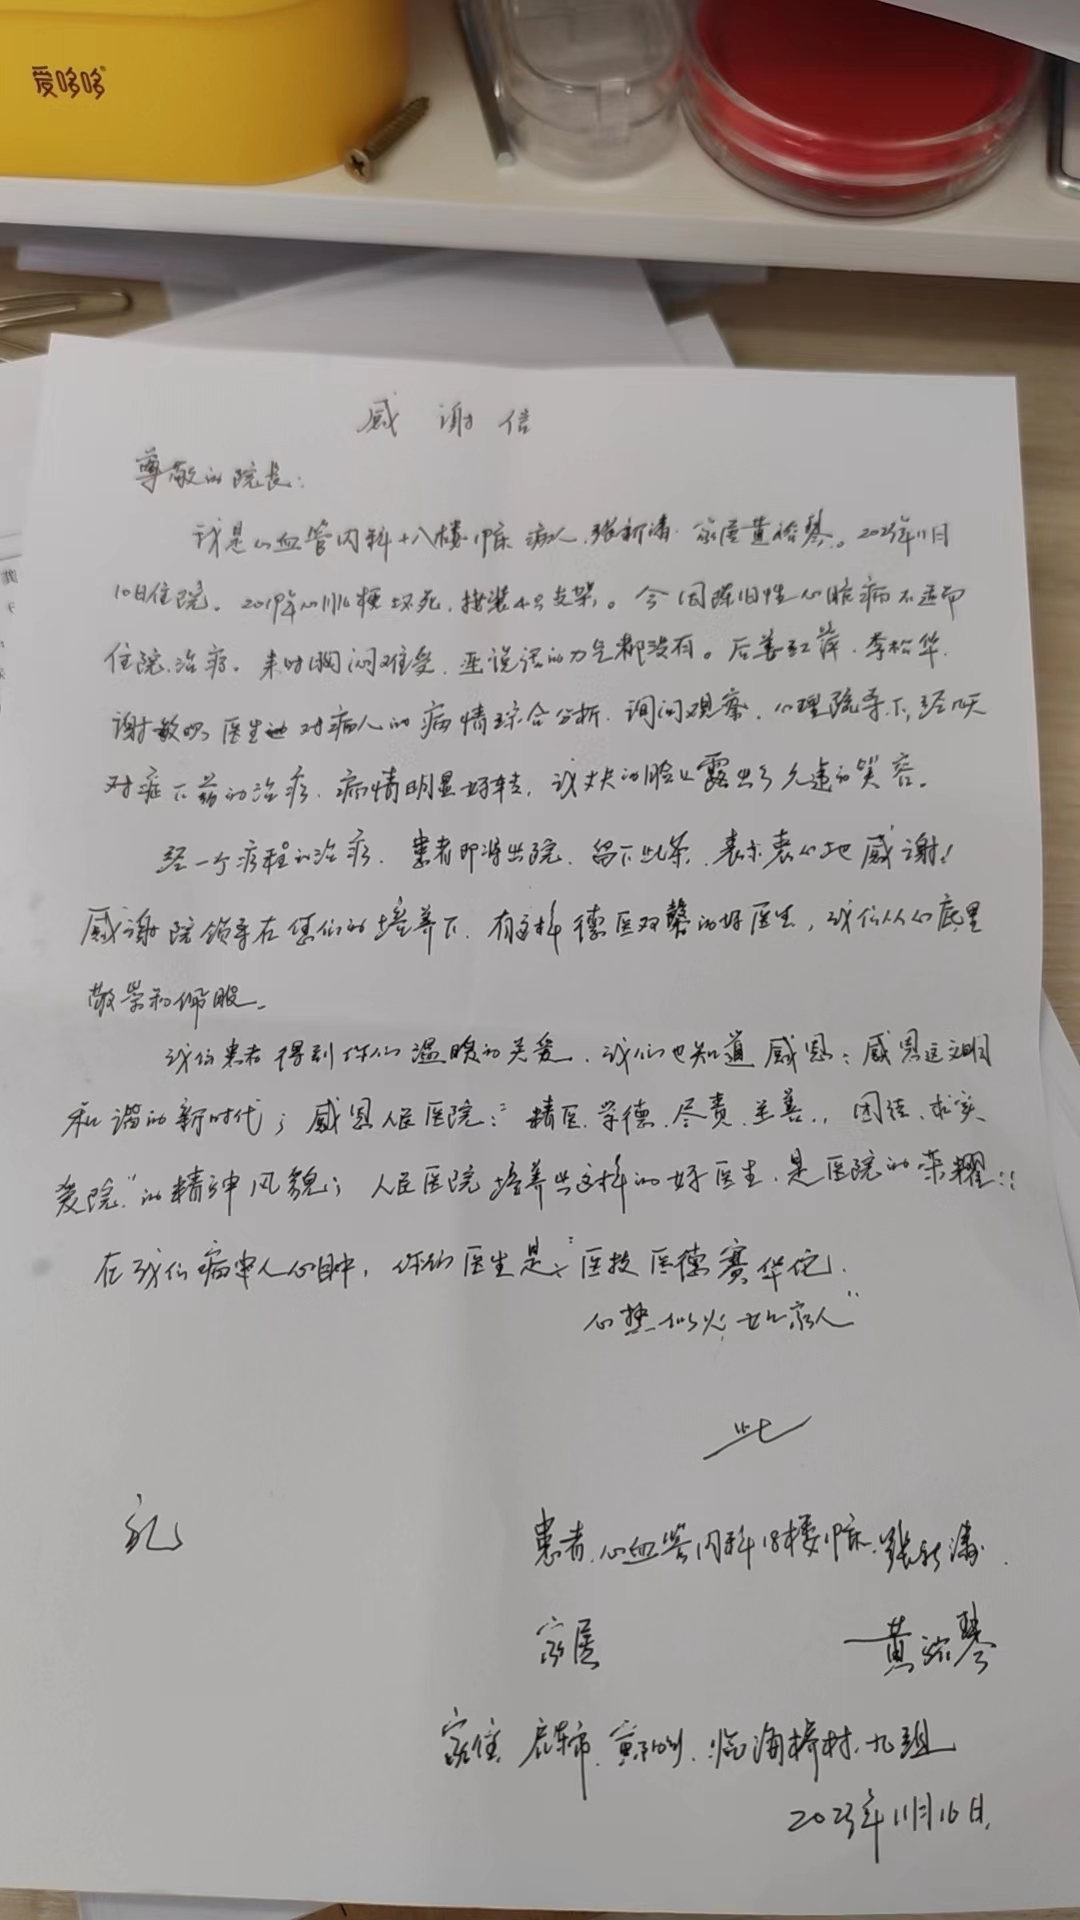 爱哆哆
感谢信
尊敬的院长:
我是心血管内科十八楼 床病人,张新涛.家属黄裕琴。2023年11月
10日住院。2019年心肌梗坏死,接装4只支架。今因陈旧性心脏病不适而
住院治疗。来时胸闷难受,连说话的力气都没有。后姜红萍,李松华,
谢敏 医生 对病人的病情综合分析.询问观察.心理疏导下,经几天
对症下药的治疗.病情明显好转,我丈夫的脸上露出了久违的笑容。
经一个疗程的治疗.患者即将出院.留下此条.表示衷心地感谢!
感谢院领导在您们的培养下.有这样德医双馨的好医生,我们从心底里
敬崇和佩服。
我们患者得到你们温暖的关爱.我们也知道感恩:感恩这文明
和谐的新时代;感恩人民医院:"精医.学德.尽责.至善.,团结、求实
爱院"的精神风貌;人民医院培养出这样的好医生.是医院的荣耀::
在我们病患人心目中,你们医生是:"医技医德赛华佗.
心热似火,如家人"
此
礼
患者.心血管内科18楼 床.张新涛.
家属 黄裕琴
家住 启东市. 临海 村.九组
2023年11月16日.